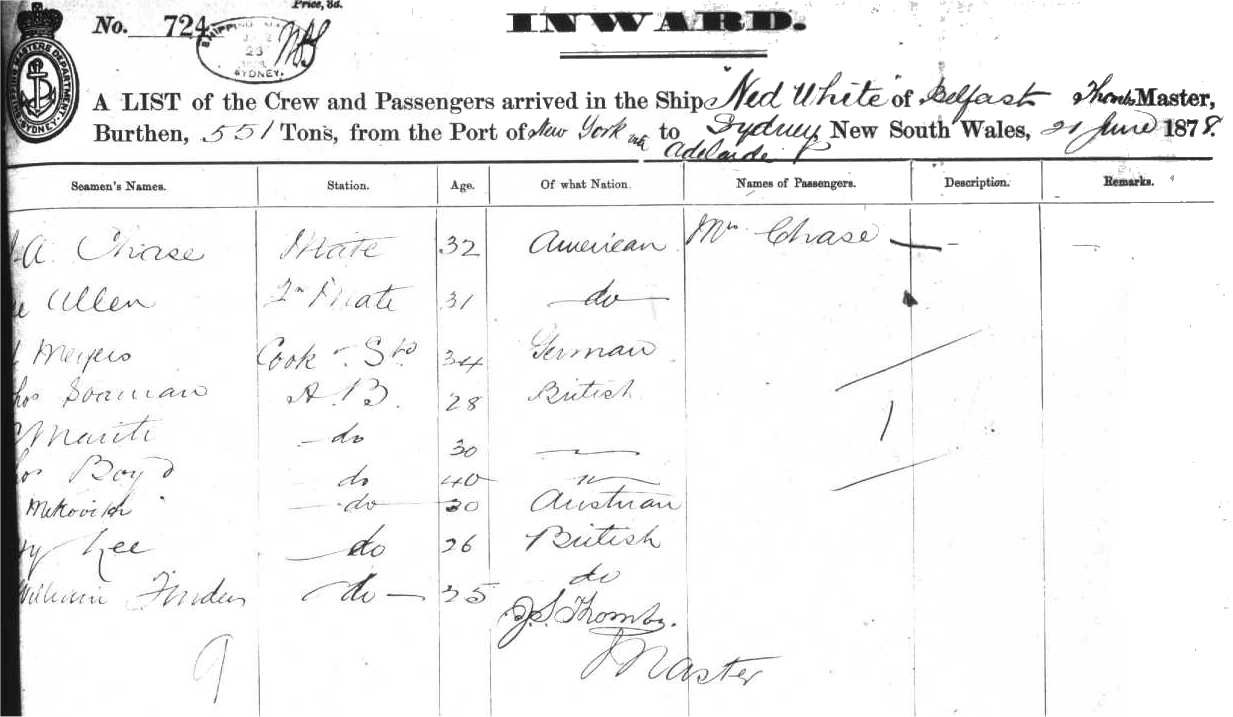 Price, 8d.
No. 724 INWARD.
SHIPPING MASTERS DEPARTMENT SYDNEY
23
SYDNEY.
A LIST of the Crew and Passengers arrived in the Ship "Ned White" of Belfast Thombs Master,
Burthen, 551 Tons, from the Port of New York via to Sydney New South Wales, 21 June 1878.
Adelaide
Seamen's Names. Station. Age. Of what Nation. Names of Passengers. Description. Remarks.
A. Chase Mate 32 American Mrs Chase — - —
Allen 2nd Mate 31 do
Meyers Cook & Std 34 German
A.B. 28 British
do 30 "
Boyd do 40 "
do 30 Austrian
Lee do 26 British
William do 25 do
1
J.S. Thombs.
Master
9